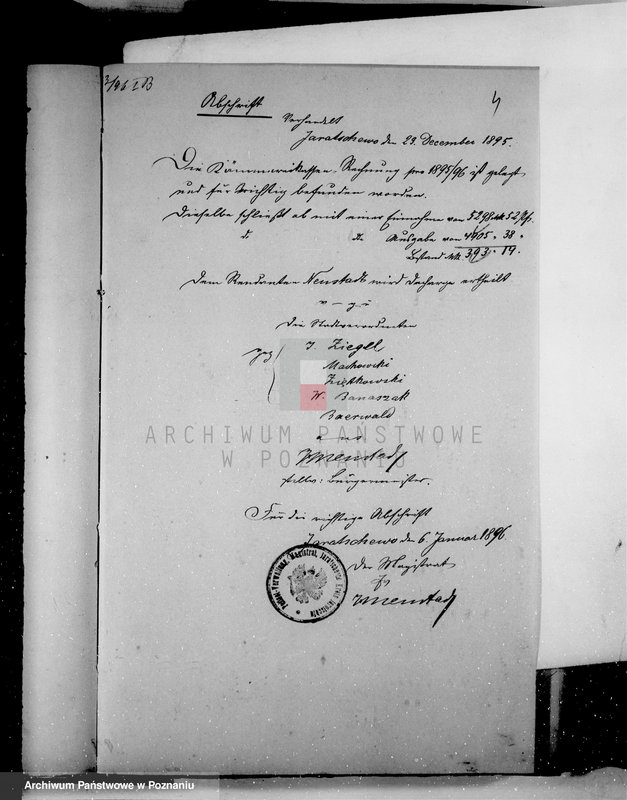 3/96 I B
Abschrift
4
Verhandelt
Jaratschewo den 23. December 1895.
Die Kämmereikassen-Rechnung pro 1895/96 ist gelegt
und für richtig befunden worden.
Dieselbe schließt ab mit einer Einnahme von 5298 Mk 52 Pf.
do do Ausgabe von 4905 " 38 "
Bestand Mk. 393 " 14 "
Dem Rendanten Neustadt wird Decharge ertheilt
v. g. u.
Die Stadtverordneten
gez
J. Ziegel
Machowski
Ziętkowski
W. Banaszak
Baerwald
a u s
Neustadt
stellv: Bürgermeister.
Für die richtige Abschrift
Jaratschewo den 6. Januar 1896.
Der Magistrat
Neustadt
ARCHIWUM PAŃSTWOWE
W POZNANIU
Archiwum Państwowe w Poznaniu